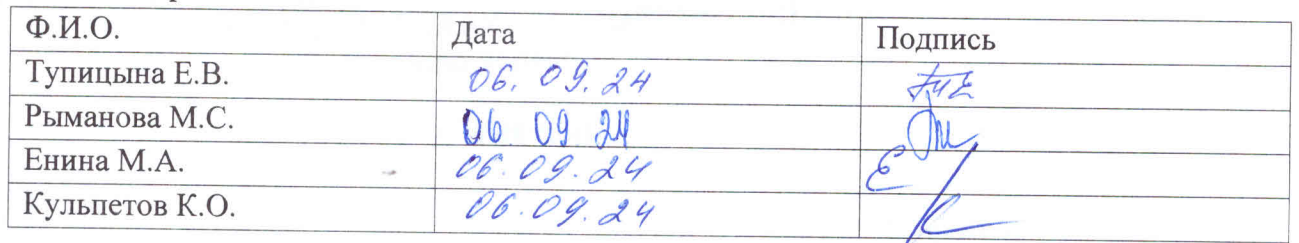 Ф.И.О. Дата Подпись
Тупицына Е.В. 06.09.24
Рыманова М.С. 06 09 24
Енина М.А. 06.09.24
Кульпетов К.О. 06.09.24